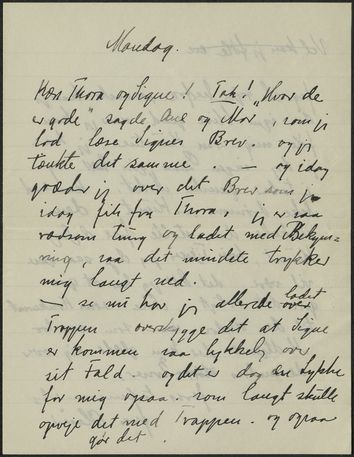 Mandag.
Kære Thora og Signe! Tak! "Hvor de
er gode" sagde Ane og Mor som jeg
lod læse Signes Brev. og jeg
tænkte det samme. — og idag
græder jeg over det Brev som jeg
idag fik fra Thora, jeg er saa
voldsom tung og ladet med Bekym-
ring, saa det mindste trykker
mig langt ned.
— se nu har jeg allerede ladet
Trappen overskygge det at Signe
er kommen saa lykkelig over
sit Fald. og det er dog en Lykke
for mig ogsaa. som langt skulle
opveje det med Trappen. og ogsaa
gør det.